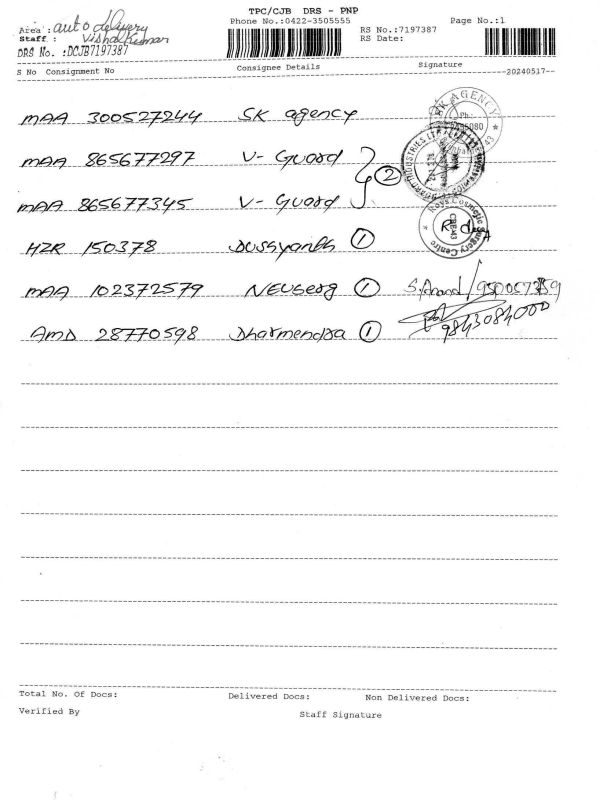 TPC/CJB DRS - PNP
Area : auto delivery
Phone No.:0422-3505555
Page No.:1
Staff : Vishal Kumar
RS No.:7197387
DRS No. :DCJB7197387
RS Date:
S No Consignment No
Consignee Details
Signature
--20240517--
MAA 300527244 SK agency
SK AGENCY
MAA 865677297 V- Guard
MAA 865677345 V- Guard
2
HZR 150378 Dussyanth 1
Cosmetic Surgery Centre
CBE43
MAA 102372579 Neuberg 1 S. Anand /
AMD 28770598 Dharmendra 1 9843084000
Total No. Of Docs:
Delivered Docs:
Non Delivered Docs:
Verified By
Staff Signature